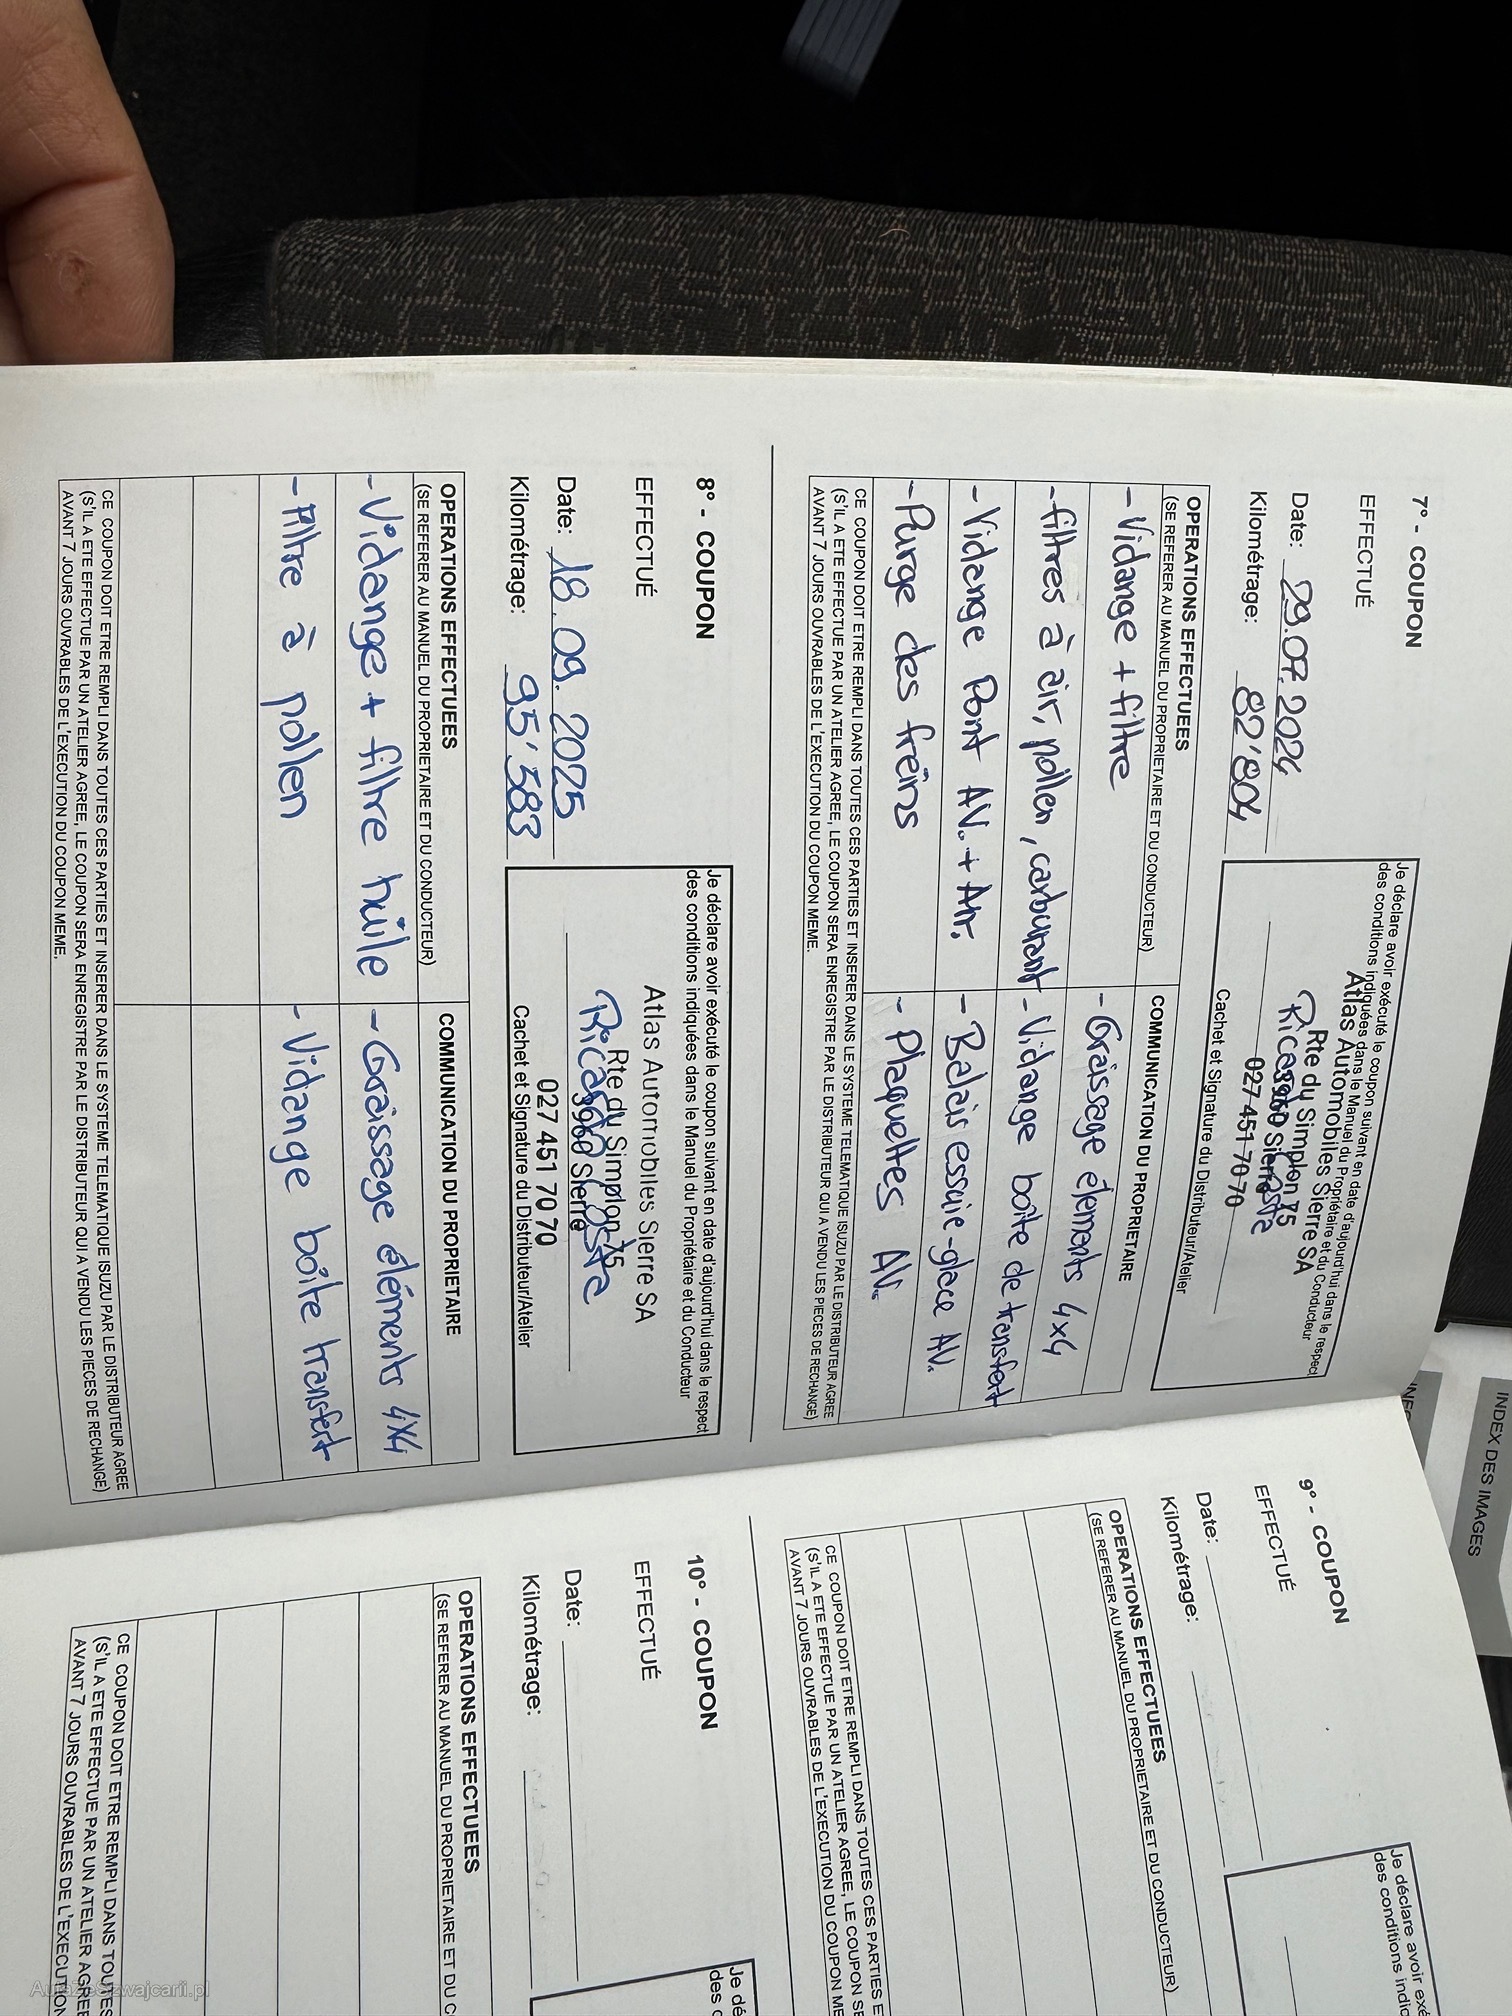 7° - COUPON
EFFECTUÉ
Date: 29.07.2024
Kilométrage: 82'804
Je déclare avoir exécuté le coupon suivant en date d'aujourd'hui dans le respect
des conditions indiquées dans le Manuel du Propriétaire et du Conducteur
Atlas Automobiles Sierre SA
Rte du Simplon 75
3960 Sierre
027 451 70 70
Cachet et Signature du Distributeur/Atelier
OPERATIONS EFFECTUEES
(SE REFERER AU MANUEL DU PROPRIETAIRE ET DU CONDUCTEUR)
COMMUNICATION DU PROPRIETAIRE
- Vidange + filtre
- Graissage élements 4x4
- filtres à air, pollen, carburant
- Vidange boîte de transfert
- Vidange Pont AV. + Arr.
- Balais essuie-glace AV.
- Purge des freins
- Plaquettes AV.
CE COUPON DOIT ETRE REMPLI DANS TOUTES CES PARTIES ET INSERER DANS LE SYSTEME TELEMATIQUE ISUZU PAR LE DISTRIBUTEUR AGREE
(S'IL A ETE EFFECTUE PAR UN ATELIER AGREE, LE COUPON SERA ENREGISTRE PAR LE DISTRIBUTEUR QUI A VENDU LES PIECES DE RECHANGE)
AVANT 7 JOURS OUVRABLES DE L'EXECUTION DU COUPON MEME.
8° - COUPON
EFFECTUÉ
Date: 18.09.2025
Kilométrage: 95'583
Je déclare avoir exécuté le coupon suivant en date d'aujourd'hui dans le respect
des conditions indiquées dans le Manuel du Propriétaire et du Conducteur
Atlas Automobiles Sierre SA
Rte du Simplon 75
3960 Sierre
027 451 70 70
Cachet et Signature du Distributeur/Atelier
OPERATIONS EFFECTUEES
(SE REFERER AU MANUEL DU PROPRIETAIRE ET DU CONDUCTEUR)
COMMUNICATION DU PROPRIETAIRE
- Vidange + filtre huile
- Graissage éléments 4X4
- Filtre à pollen
- Vidange boîte transfert
CE COUPON DOIT ETRE REMPLI DANS TOUTES CES PARTIES ET INSERER DANS LE SYSTEME TELEMATIQUE ISUZU PAR LE DISTRIBUTEUR AGREE
(S'IL A ETE EFFECTUE PAR UN ATELIER AGREE, LE COUPON SERA ENREGISTRE PAR LE DISTRIBUTEUR QUI A VENDU LES PIECES DE RECHANGE)
AVANT 7 JOURS OUVRABLES DE L'EXECUTION DU COUPON MEME.
INDEX DES IMAGES
9° - COUPON
EFFECTUÉ
Date:
Kilométrage:
Je déclare avoir exé
des conditions indiq
OPERATIONS EFFECTUEES
(SE REFERER AU MANUEL DU PROPRIETAIRE ET DU CONDUCTEUR)
CE COUPON DOIT ETRE REMPLI DANS TOUTES CES PARTIES E
(S'IL A ETE EFFECTUE PAR UN ATELIER AGREE, LE COUPON SE
AVANT 7 JOURS OUVRABLES DE L'EXECUTION DU COUPON ME
10° - COUPON
EFFECTUÉ
Date:
Kilométrage:
Je dé
des c
OPERATIONS EFFECTUEES
(SE REFERER AU MANUEL DU PROPRIETAIRE ET DU C
CE COUPON DOIT ETRE REMPLI DANS TOUTES
(S'IL A ETE EFFECTUE PAR UN ATELIER AGREE
AVANT 7 JOURS OUVRABLES DE L'EXECUTION